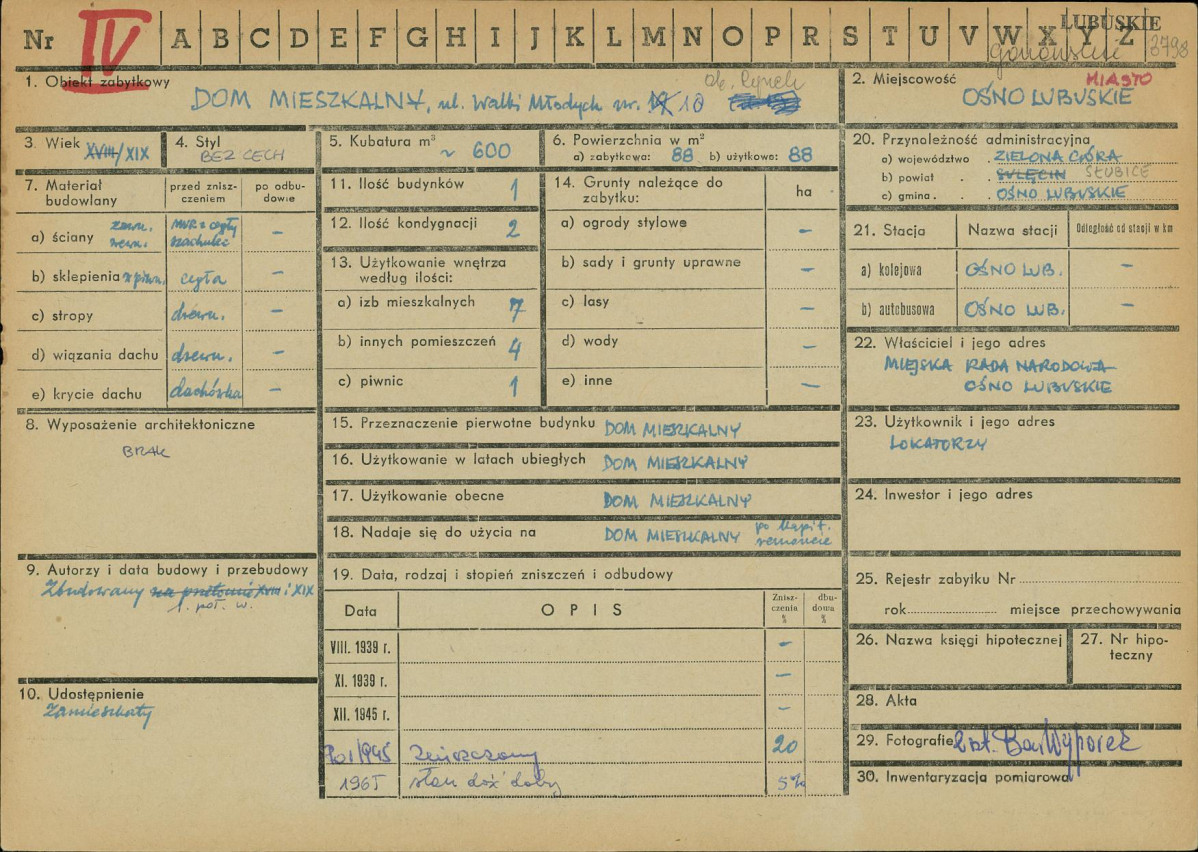 Nr IV A B C D E F G H I J K L M N O P R S T U V W X Y Z
LUBUSKIE
gorzowskie 3798
1. Obiekt zabytkowy
DOM MIESZKALNY, ul. Walki Młodych nr. 10
2. Miejscowość MIASTO
OŚNO LUBUSKIE
3. Wiek XVIII/XIX
4. Styl
BEZ CECH
5. Kubatura m³ ~ 600
6. Powierzchnia w m²
a) zabytkowa: 88 b) użytkowe: 88
20. Przynależność administracyjna
a) województwo ZIELONA GÓRA
b) powiat SULĘCIN SŁUBICE
c) gmina OŚNO LUBUSKIE
7. Materiał budowlany
przed zniszczeniem
po odbudowie
a) ściany zewn. wewn. mur z cegły szachulec –
b) sklepienia w piwn. cegła –
c) stropy drewn. –
d) wiązania dachu drewn. –
e) krycie dachu dachówka –
11. Ilość budynków 1
12. Ilość kondygnacji 2
13. Użytkowanie wnętrza
według ilości:
a) izb mieszkalnych 7
b) innych pomieszczeń 4
c) piwnic 1
14. Grunty należące do
zabytku: ha
a) ogrody stylowe –
b) sady i grunty uprawne –
c) lasy –
d) wody –
e) inne –
21. Stacja Nazwa stacji Odległość od stacji w km
a) kolejowa OŚNO LUB. –
b) autobusowa OŚNO LUB. –
22. Właściciel i jego adres
MIEJSKA RADA NARODOWA
OŚNO LUBUSKIE
8. Wyposażenie architektoniczne
BRAK
15. Przeznaczenie pierwotne budynku DOM MIESZKALNY
16. Użytkowanie w latach ubiegłych DOM MIESZKALNY
17. Użytkowanie obecne DOM MIESZKALNY
18. Nadaje się do użycia na DOM MIESZKALNY po kapit. remoncie
23. Użytkownik i jego adres
LOKATORZY
24. Inwestor i jego adres
9. Autorzy i data budowy i przebudowy
Zbudowany na przełomie XVIII i XIX
1. poł. w.
10. Udostępnienie
Zamieszkały
19. Data, rodzaj i stopień zniszczeń i odbudowy
Data OPIS Zniszczenia % dbudowa %
VIII. 1939 r. –
XI. 1939 r. –
XII. 1945 r. –
Po 1945 Zniszczony 20
1965 stan dość dobry 5%
25. Rejestr zabytku Nr
rok miejsce przechowywania
26. Nazwa księgi hipotecznej
27. Nr hipoteczny
28. Akta
29. Fotografie
30. Inwentaryzacja pomiarowa